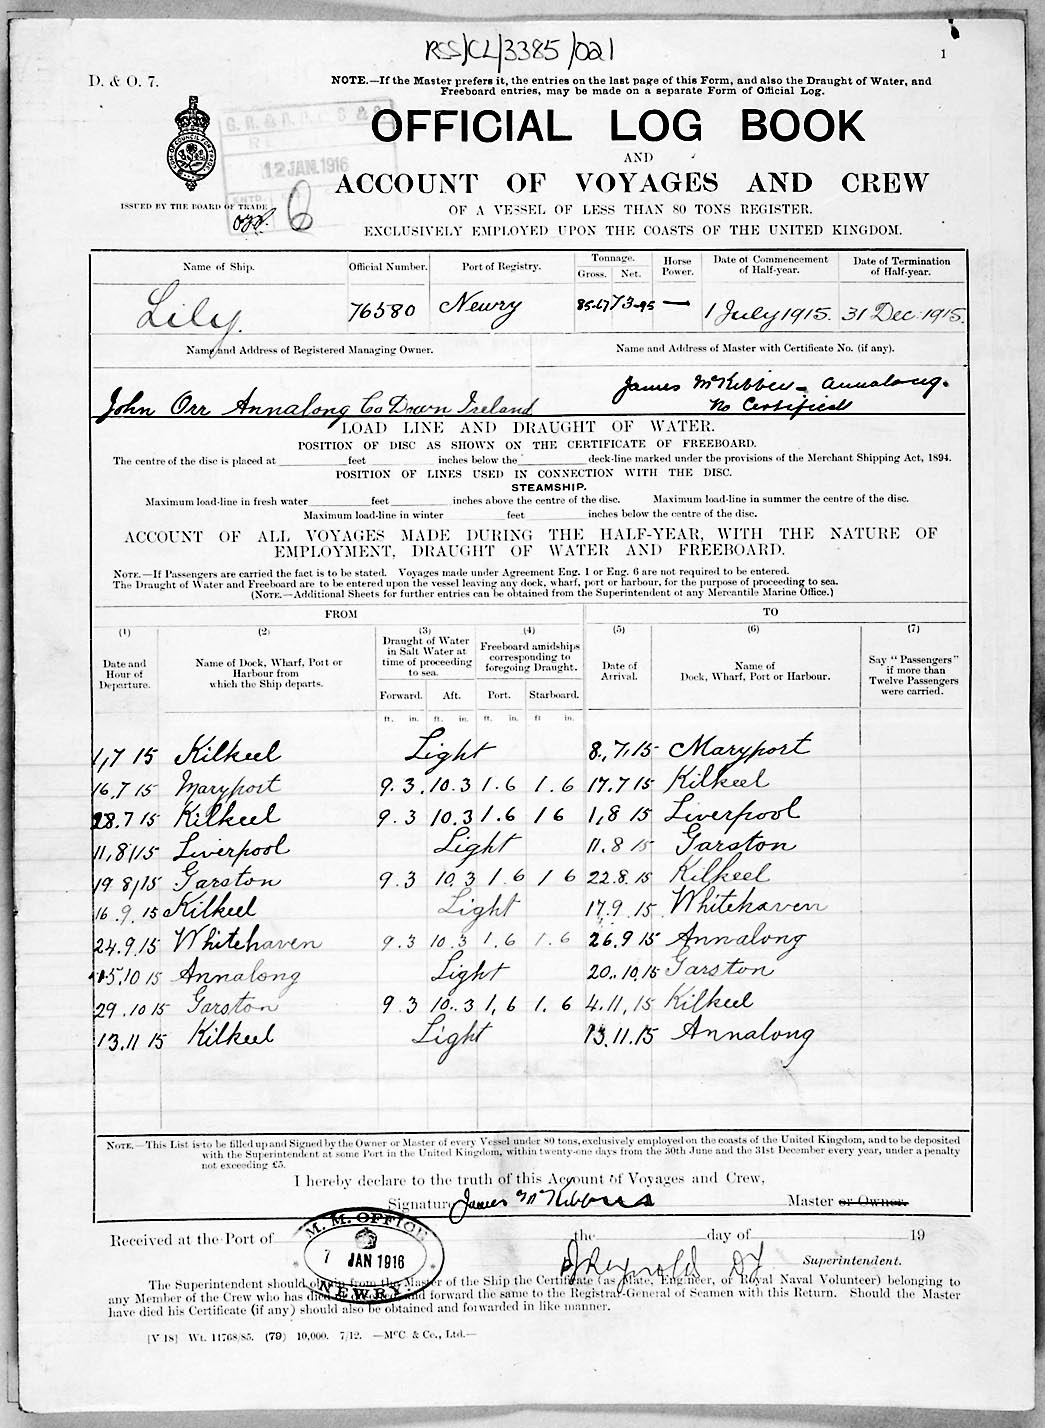 RSS/CL/3385/021
1
D. & O. 7.
NOTE.—If the Master prefers it, the entries on the last page of this Form, and also the Draught of Water, and
Freeboard entries, may be made on a separate Form of Official Log.
OFFICIAL LOG BOOK
12 JAN. 1916
AND
ACCOUNT OF VOYAGES AND CREW
ISSUED BY THE BOARD OF TRADE
OF A VESSEL OF LESS THAN 80 TONS REGISTER.
EXCLUSIVELY EMPLOYED UPON THE COASTS OF THE UNITED KINGDOM.
Name of Ship. Official Number. Port of Registry. Tonnage. Gross. Net. Horse Power. Date of Commencement of Half-year. Date of Termination of Half-year.
Lily. 76580 Newry 85.67 73.95 — 1 July 1915. 31 Dec. 1915.
Name and Address of Registered Managing Owner. Name and Address of Master with Certificate No. (if any).
James McKibben - Annalong.
John Orr Annalong Co Down Ireland No Certificate
LOAD LINE AND DRAUGHT OF WATER.
POSITION OF DISC AS SHOWN ON THE CERTIFICATE OF FREEBOARD.
The centre of the disc is placed at feet inches below the deck-line marked under the provisions of the Merchant Shipping Act, 1894.
POSITION OF LINES USED IN CONNECTION WITH THE DISC.
STEAMSHIP.
Maximum load-line in fresh water feet inches above the centre of the disc. Maximum load-line in summer the centre of the disc.
Maximum load-line in winter feet inches below the centre of the disc.
ACCOUNT OF ALL VOYAGES MADE DURING THE HALF-YEAR, WITH THE NATURE OF
EMPLOYMENT, DRAUGHT OF WATER AND FREEBOARD.
NOTE.—If Passengers are carried the fact is to be stated. Voyages made under Agreement Eng. 1 or Eng. 6 are not required to be entered.
The Draught of Water and Freeboard are to be entered upon the vessel leaving any dock, wharf, port or harbour, for the purpose of proceeding to sea.
(NOTE.—Additional Sheets for further entries can be obtained from the Superintendent of any Mercantile Marine Office.)
FROM TO
(1) (2) (3) (4) (5) (6) (7)
Date and Hour of Departure. Name of Dock, Wharf, Port or Harbour from which the Ship departs. Draught of Water in Salt Water at time of proceeding to sea. Freeboard amidships corresponding to foregoing Draught. Date of Arrival. Name of Dock, Wharf, Port or Harbour. Say "Passengers" if more than Twelve Passengers were carried.
Forward. Aft. Port. Starboard.
ft. in. ft. in. ft. in. ft in.
1,7 15 Kilkeel Light 8.,7,15 Maryport
16.7 15 Maryport 9.3. 10.3 1.6 1.6 17.7 15 Kilkeel
28.7 15 Kilkeel 9.3 10.3 1.6 1 6 1,8 15 Liverpool
11,8/15 Liverpool Light 11.8 15 Garston
19 8/15 Garston 9.3 10.3 1.6 1 6 22.8.15 Kilkeel
16.9.15 Kilkeel Light 17.9.15 Whitehaven
24.9.15 Whitehaven 9.3 10.3 1.6 1.6 26.9 15 Annalong
15.10 15 Annalong Light 20.10.15 Garston
29.10 15 Garston 9.3 10..3 1,6 1.6 4.11,15 Kilkeel
13.11 15 Kilkeel Light 13.11.15 Annalong
NOTE.—This List is to be filled up and Signed by the Owner or Master of every Vessel under 80 tons, exclusively employed on the coasts of the United Kingdom, and to be deposited
with the Superintendent at some Port in the United Kingdom, within twenty-one days from the 30th June and the 31st December every year, under a penalty
not exceeding £5.
I hereby declare to the truth of this Account of Voyages and Crew,
Signature James McKibben Master or Owner.
Received at the Port of the day of 19
M. M. OFFICE
7 JAN 1916
NEWRY
Reynolds
Superintendent.
The Superintendent should obtain from the Master of the Ship the Certificate (as Mate, Engineer, or Royal Naval Volunteer) belonging to
any Member of the Crew who has died and forward the same to the Registrar-General of Seamen with this Return. Should the Master
have died his Certificate (if any) should also be obtained and forwarded in like manner.
[V 18] Wt. 11768/85. (79) 10,000. 7/12. —McC. & Co., Ltd.—